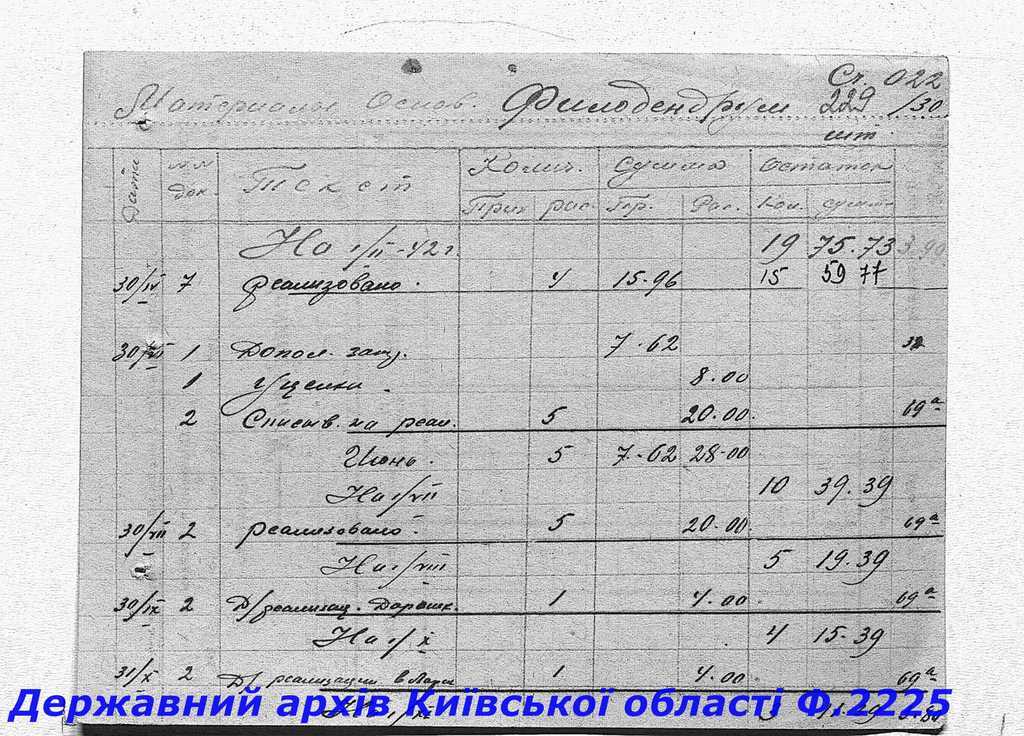 Сч. 022
Материалы Основ. Филодендрум 229 /30
шт.
Дата №№ док. Текст Колич. Сумма Остаток
Прих рас. Пр. Рас. Кол. сумма
На 1/II-42 г. 19 75.73 3.99
30/IV 7 реализовано. 4 15-96 15 59 77
30/VI 1 Допол. зап. 7-62 32
1 Уценки. 8.00
2 Списыв. на реал. 5 20.00. 69а
Июнь. 5 7-62 28-00
На 1/VII 10 39.39
30/VII 2 реализовано. 5 20-00. 69а
На 1/VIII 5 19.39
30/IX 2 Д/реализац. 1 4.00. 69а
На 1/X 4 15-39
31/X 2 Д/ реализации в 1 4.00 69а
На 1/XI 3 11.39
Державний архів Київської області Ф.2225